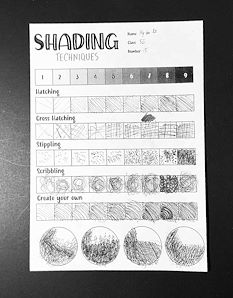 SHADING
TECHNIQUES
Name
Class
Number
1 2 3 4 5 6 7 8 9
Hatching
Cross Hatching
Stippling
Scribbling
Create your own